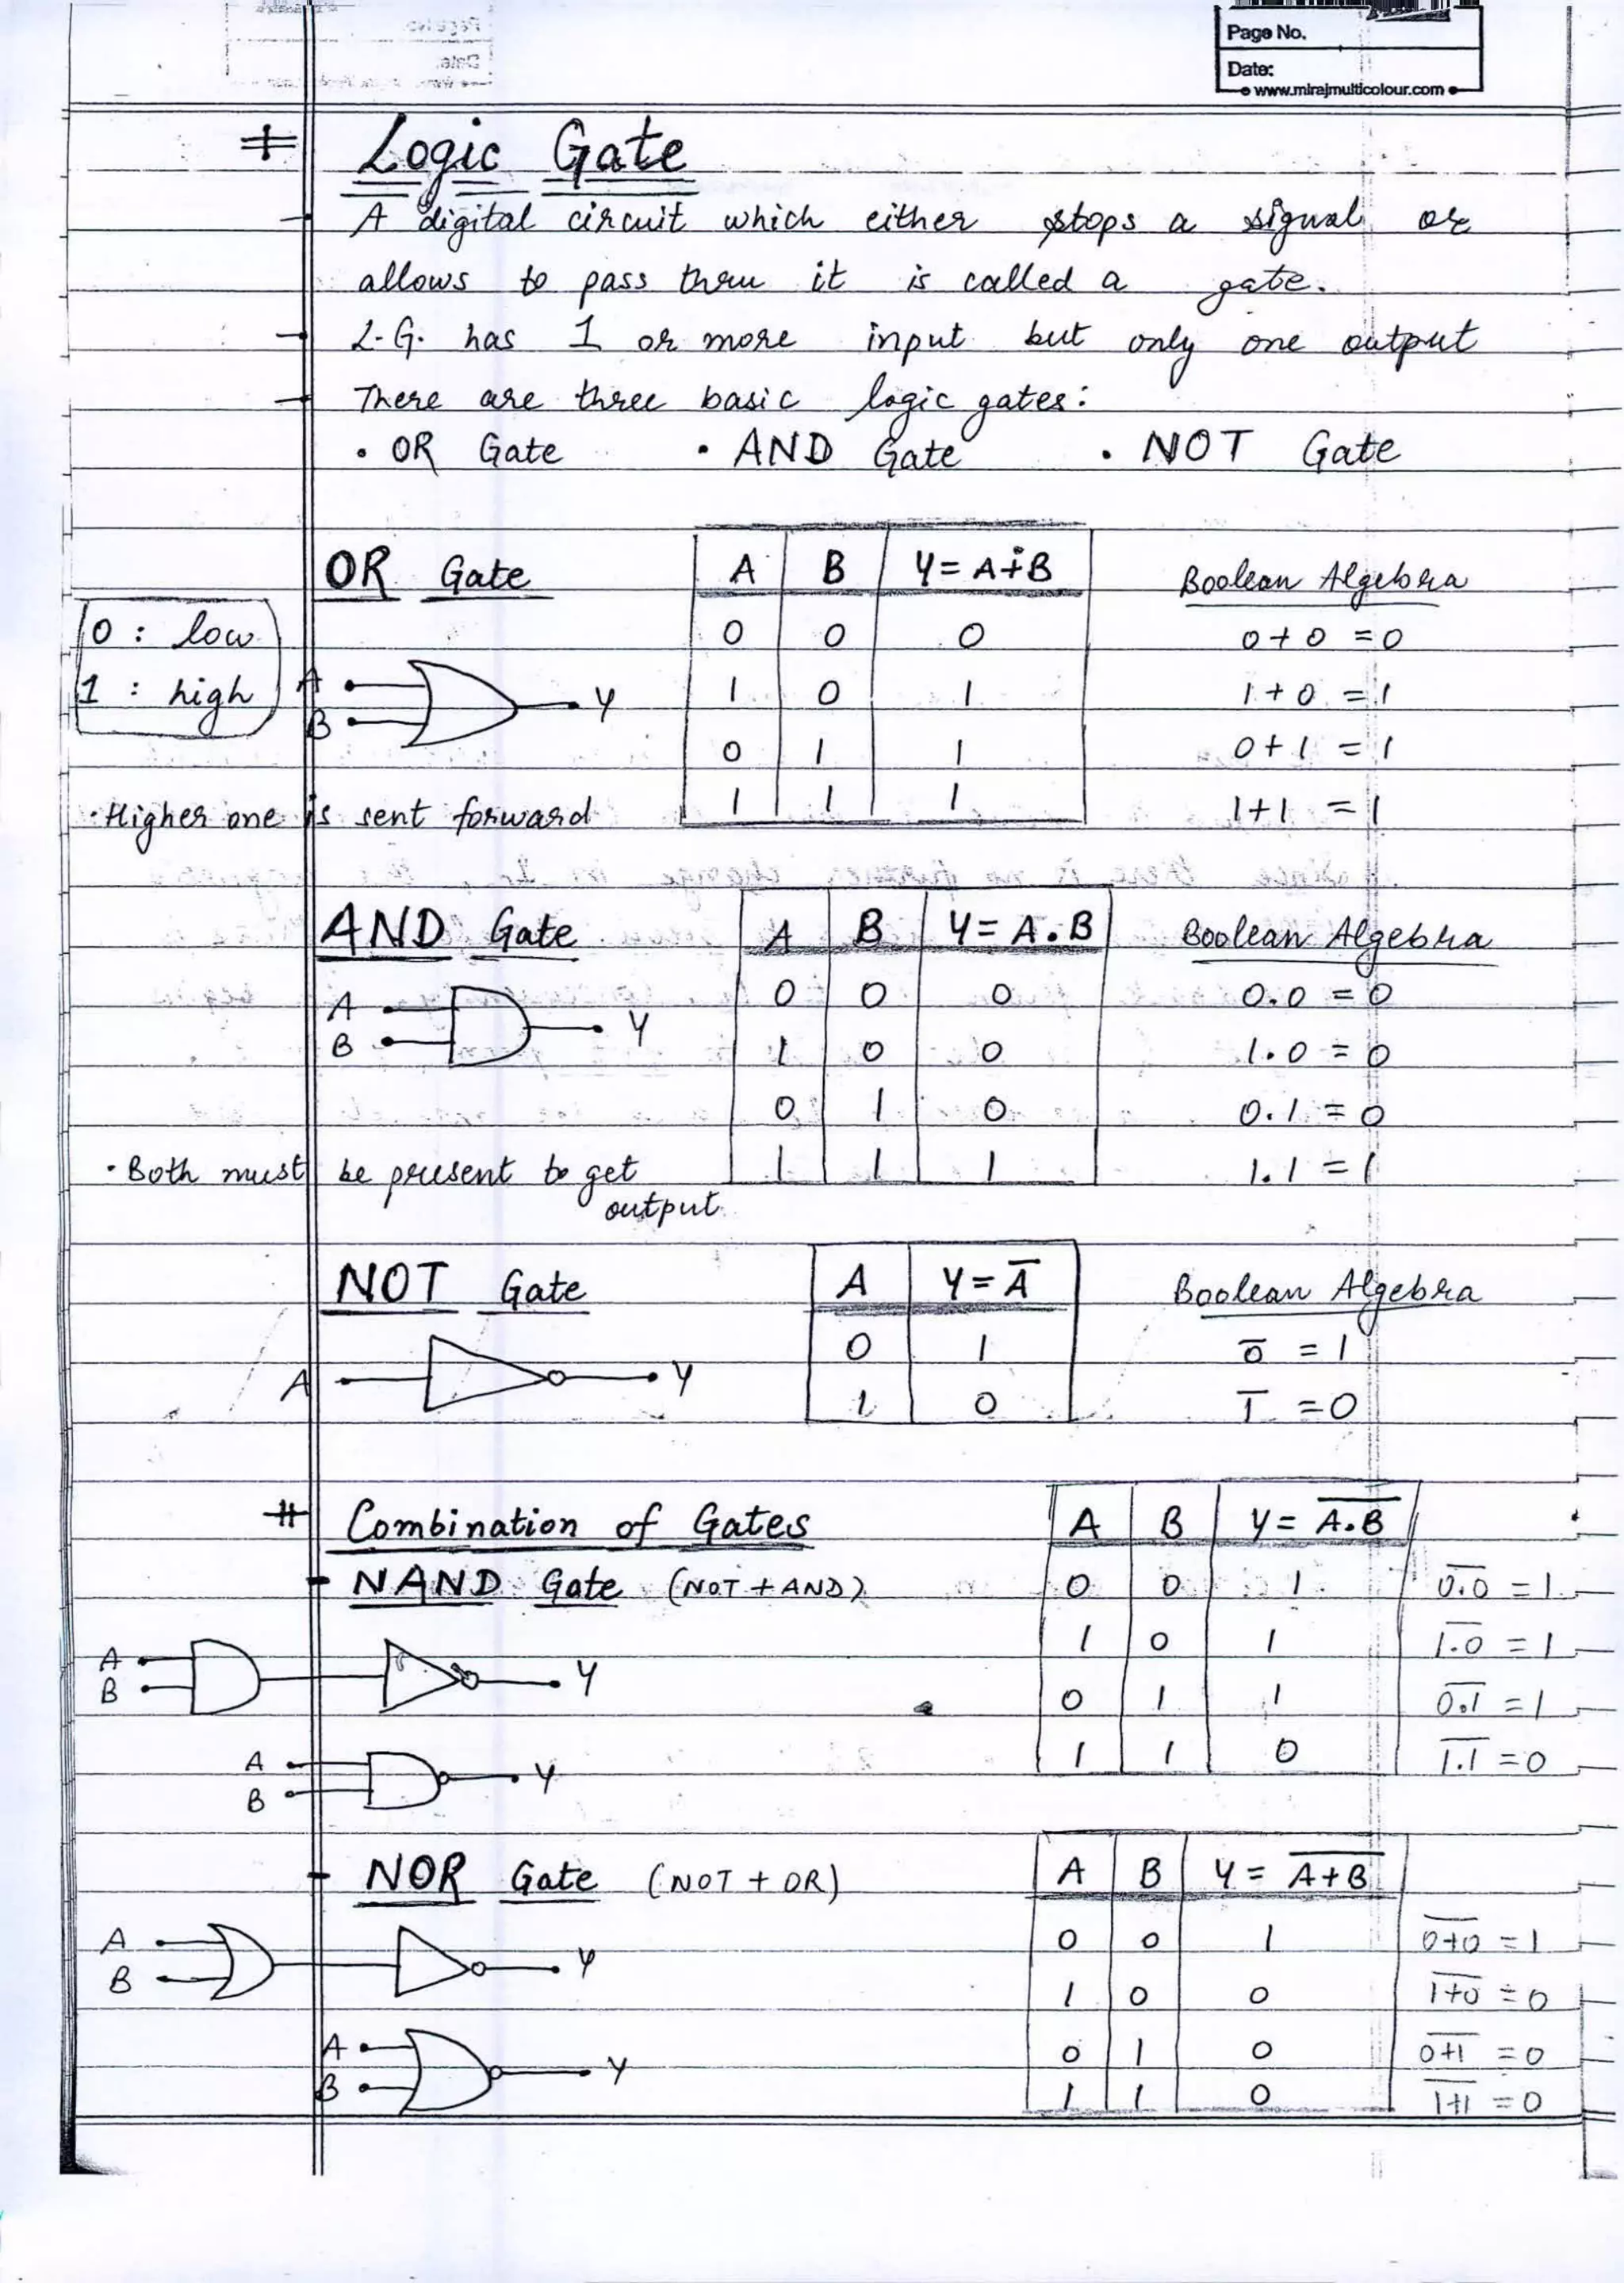 Page No.
Date:
www.mirajmulticolour.com
# Logic Gate
- A digital circuit which either stops a signal or
allows to pass thru it is called a gate.
- L.G. has 1 or more input but only one output
- There are three basic logic gates:
• OR Gate • AND Gate • NOT Gate
OR Gate
0 : low
1 : high
A
B
Y
• Higher one is sent forward
A B Y = A+B
0 0 0
1 0 1
0 1 1
1 1 1
Boolean Algebra
0+0 = 0
1+0 = 1
0+1 = 1
1+1 = 1
AND Gate
A
B
Y
• Both must be present to get
output
A B Y = A.B
0 0 0
1 0 0
0 1 0
1 1 1
Boolean Algebra
0.0 = 0
1.0 = 0
0.1 = 0
1.1 = 1
NOT Gate
A Y
A Y = A̅
0 1
1 0
Boolean Algebra
0̅ = 1
1̅ = 0
# Combination of Gates
- NAND Gate (NOT + AND)
A
B
Y
A
B
Y
A B Y = A̅.̅B̅
0 0 1
1 0 1
0 1 1
1 1 0
0̅.̅0̅ = 1
1̅.̅0̅ = 1
0̅.̅1̅ = 1
1̅.̅1̅ = 0
- NOR Gate (NOT + OR)
A
B
Y
A
B
Y
A B Y = A̅+̅B̅
0 0 1
1 0 0
0 1 0
1 1 0
0̅+̅0̅ = 1
1̅+̅0̅ = 0
0̅+̅1̅ = 0
1̅+̅1̅ = 0